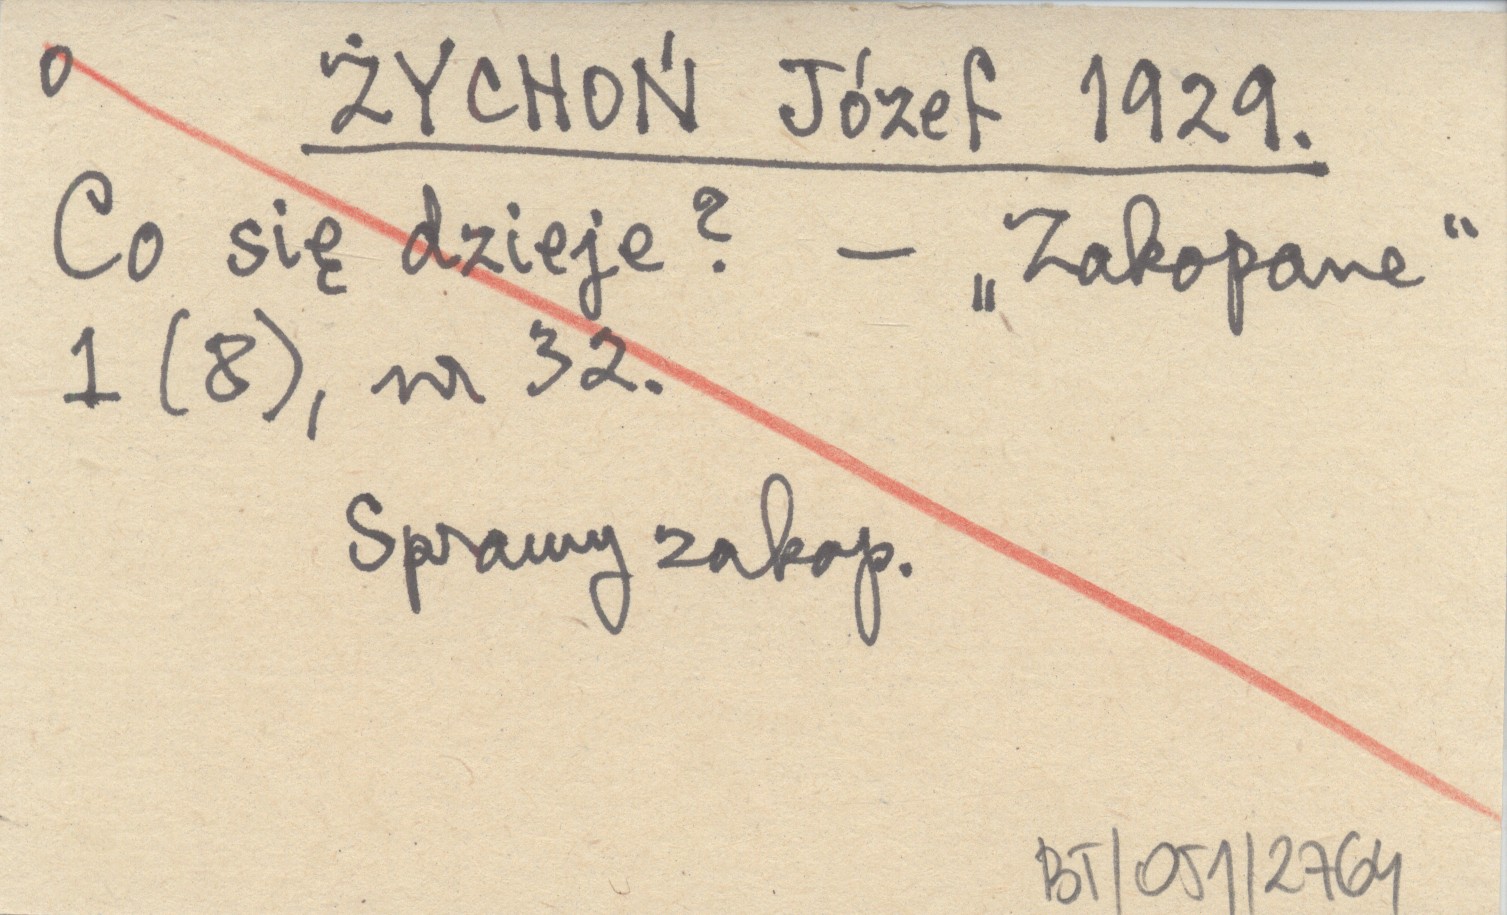 o ŻYCHOŃ Józef 1929.
Co się dzieje? – „Zakopane“
1 (8), nr 32.
Sprawy zakop.
BT/051/2764